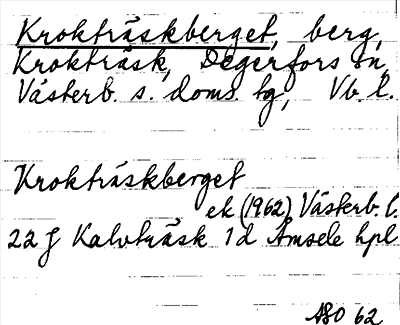 Krokträskberget, berg,
Krokträsk, Degerfors sn,
Västerb. s. doms. tg, Vb. l.
Krokträskberget
ek (1962) Västerb. l.
22 J Kalvträsk 1d Åmsele hpl
ABO 62